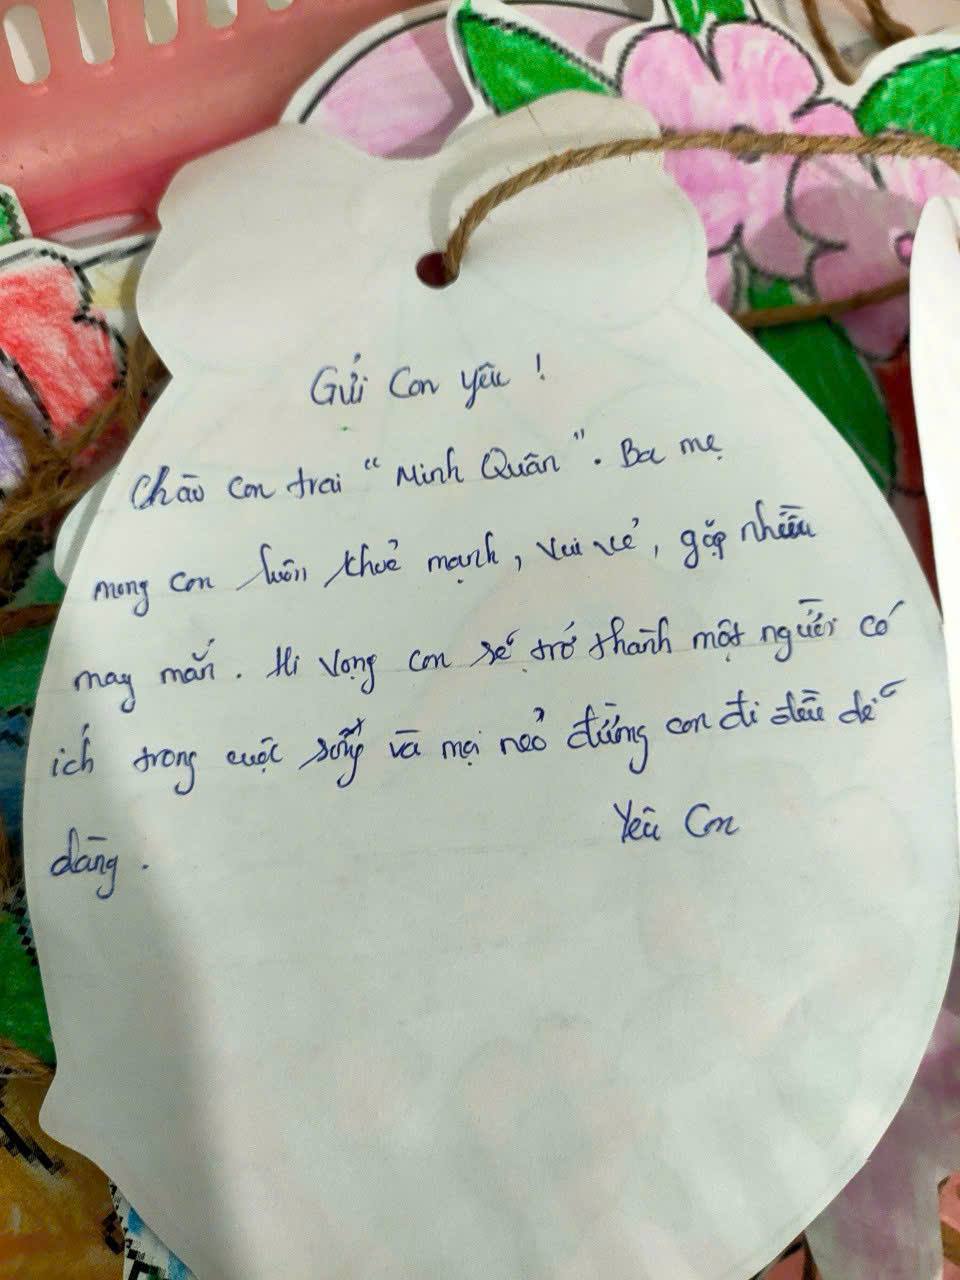 Gửi Con yêu !
Chào con trai "Minh Quân". Ba mẹ
mong con luôn khoẻ mạnh, vui vẻ, gặp nhiều
may mắn. Hi vọng con sẽ trở thành một người có
ích trong cuộc sống và mọi nẻo đường con đi đều dễ
dàng.
Yêu Con